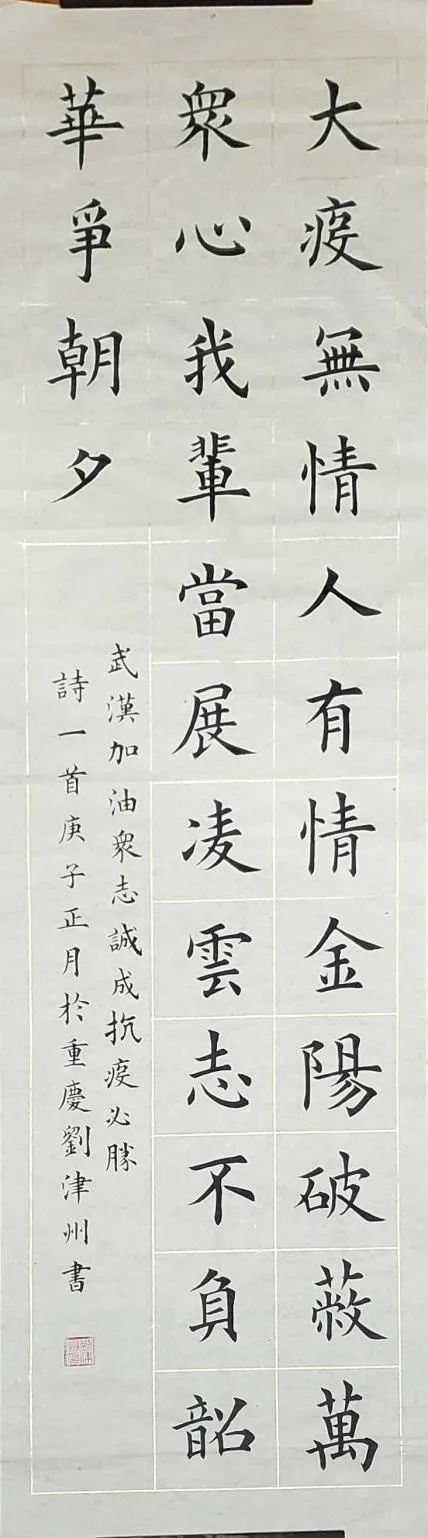 大疫無情人有情金陽破蔽萬
衆心我輩當展凌雲志不負韶
華爭朝夕
武漢加油衆志誠成抗疫必勝
詩一首庚子正月於重慶劉津州書